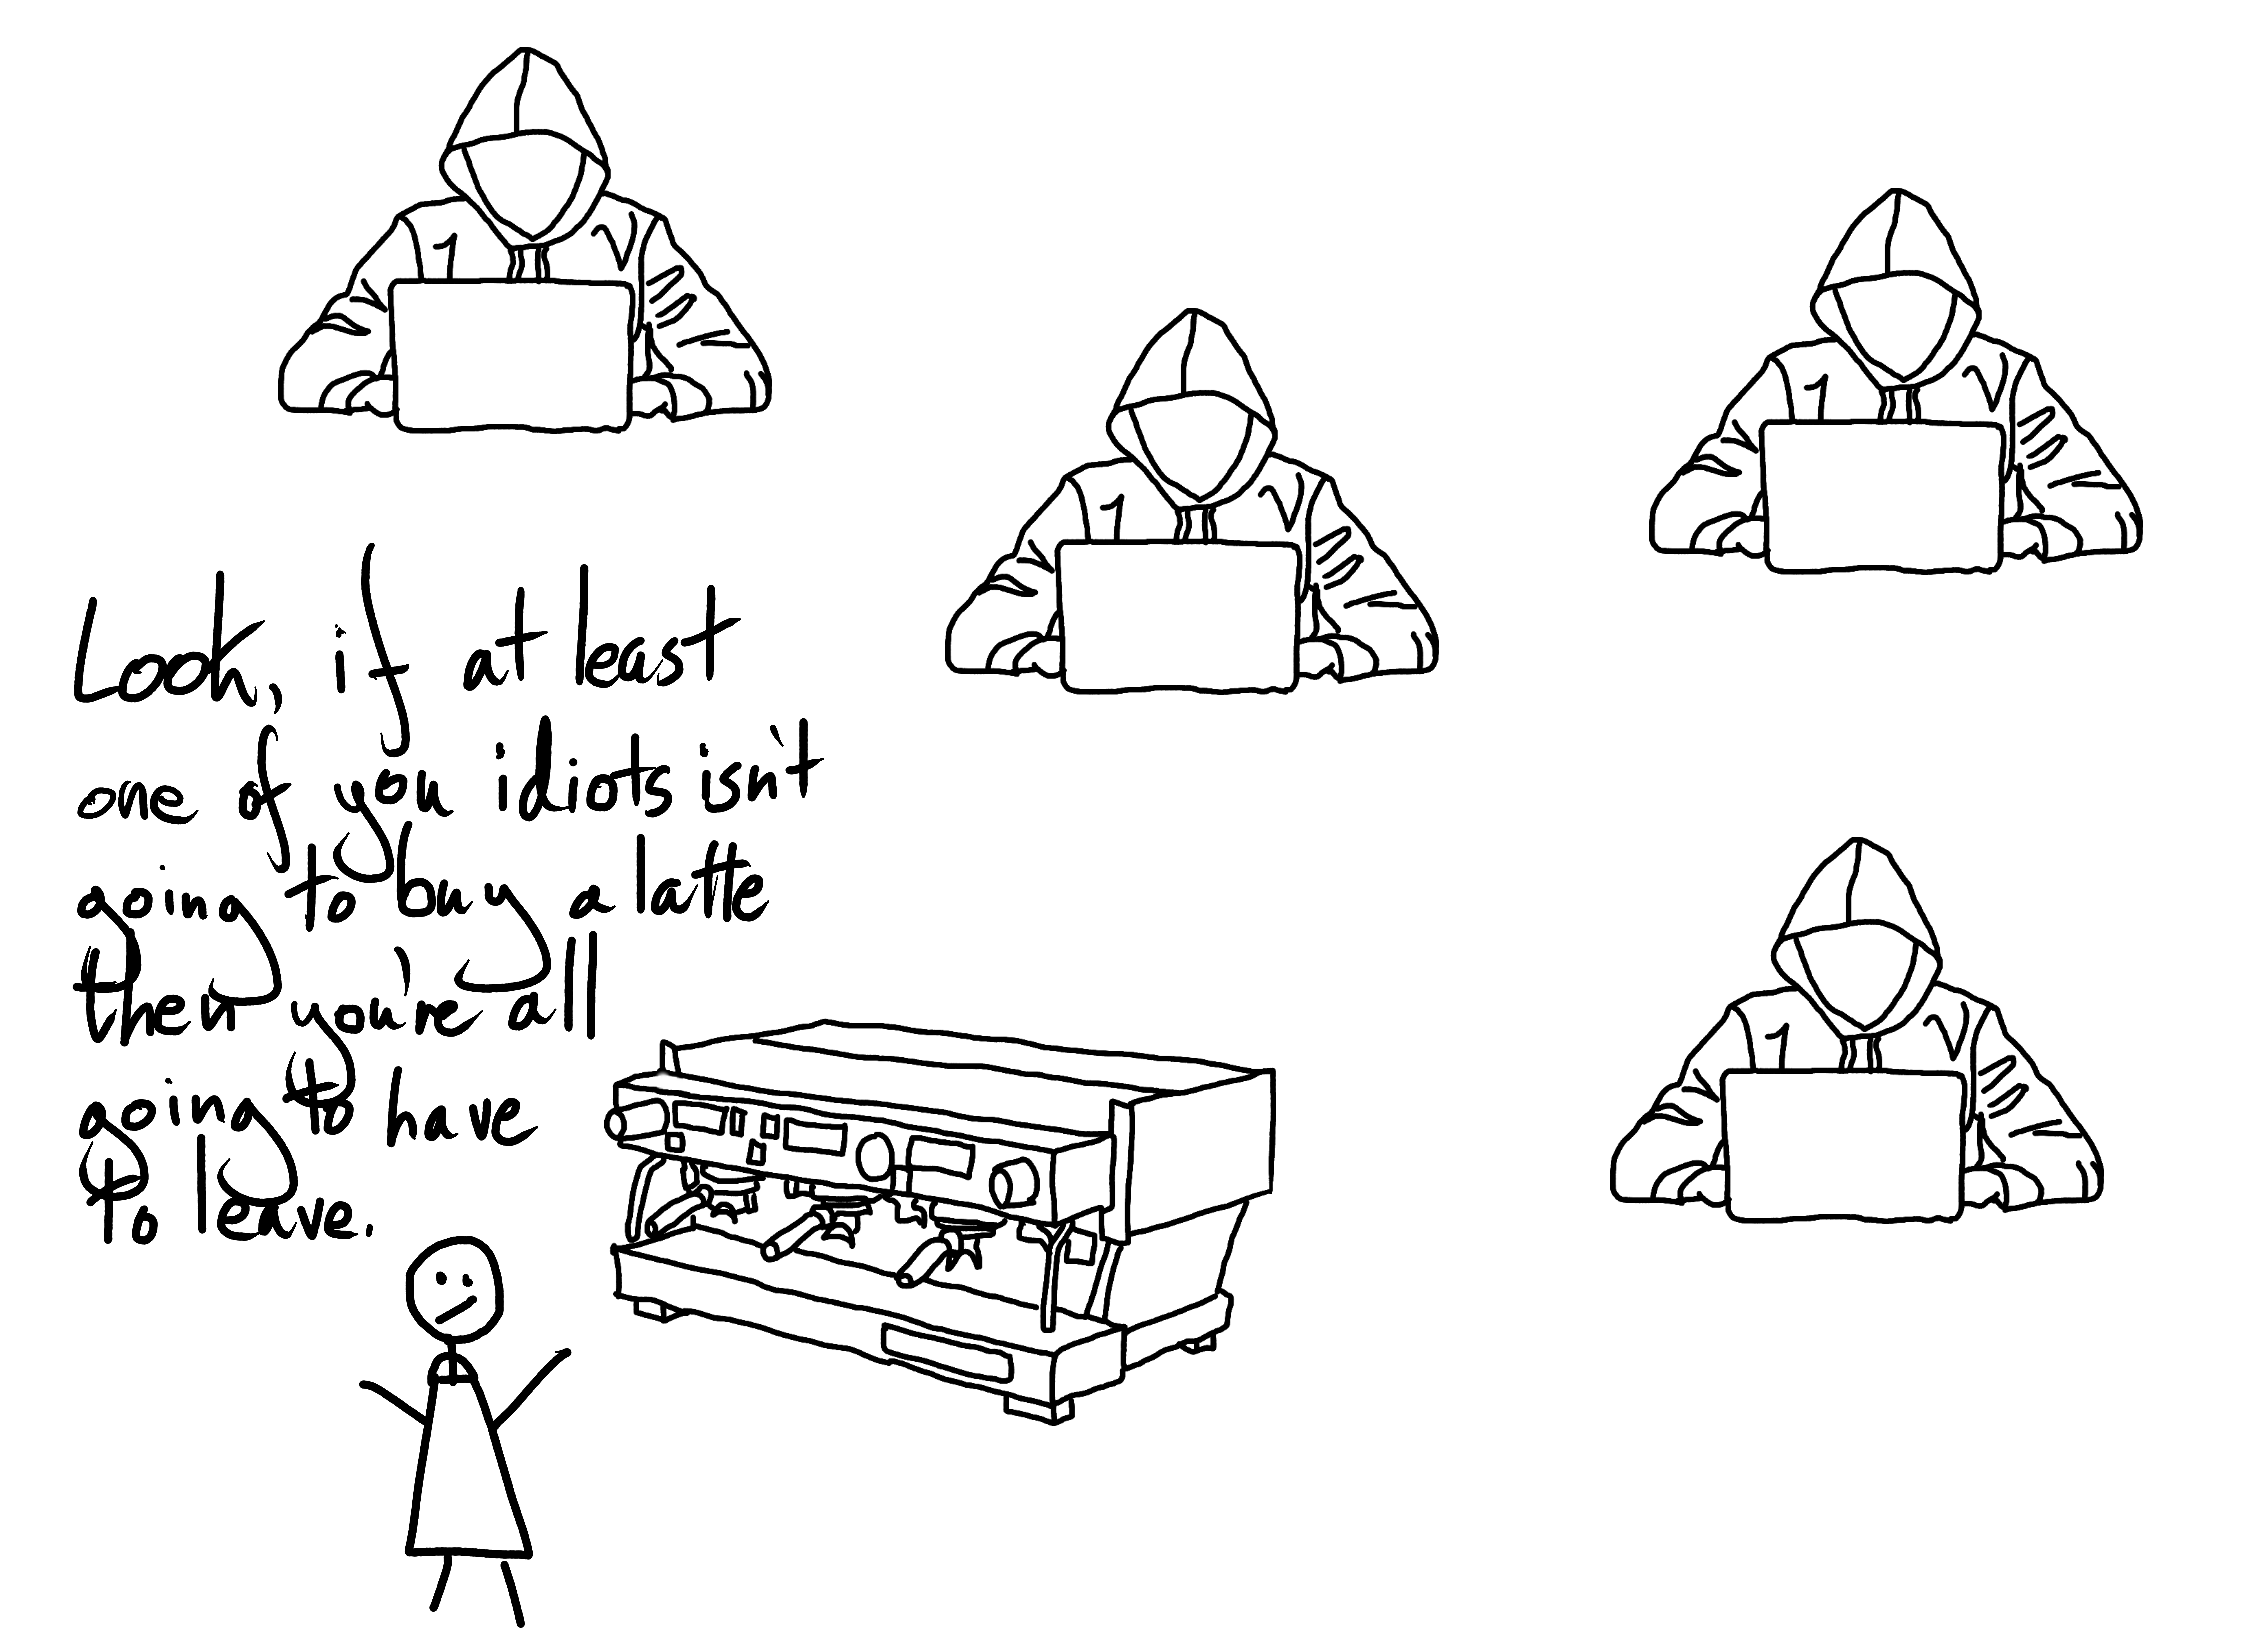 Look, if at least
one of you idiots isn't
going to buy a latte
then you're all
going to have
to leave.